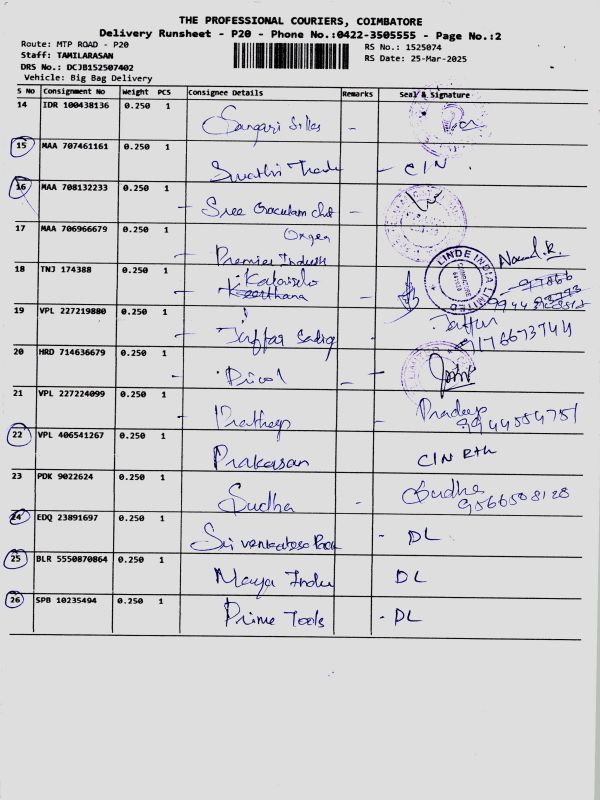 THE PROFESSIONAL COURIERS, COIMBATORE
Delivery Runsheet - P20 - Phone No.:0422-3505555 - Page No.:2
Route: MTP ROAD - P20
RS No.: 1525074
Staff: TAMILARASAN
RS Date: 25-Mar-2025
DRS No.: DCJB152507402
Vehicle: Big Bag Delivery
S No Consignment No Weight PCS Consignee Details Remarks Seal & Signature
14 IDR 100438136 0.250 1
Sangari Silks -
15 MAA 707461161 0.250 1
Swathi Trade - CIN
16 MAA 708132233 0.250 1
- Sree Gokulam Chit -
17 MAA 706966679 0.250 1
- Premier Industh
18 TNJ 174388 0.250 1
LINDE INDIA LIMITED
19 VPL 227219880 0.250 1
- Jaffar Sadiq
7176673744
20 HRD 714636679 0.250 1
- Pricol - -
21 VPL 227224099 0.250 1
- Pratheep
Pradeep
9944554751
22 VPL 406541267 0.250 1
Prakasan CIN Rtn
23 PDK 9022624 0.250 1
Sudha
Sudha
9566508128
24 EDQ 23891697 0.250 1
Sri venkatesa - DL
25 BLR 5550870864 0.250 1
Maya Indu DL
26 SPB 10235494 0.250 1
Prime Tools - DL